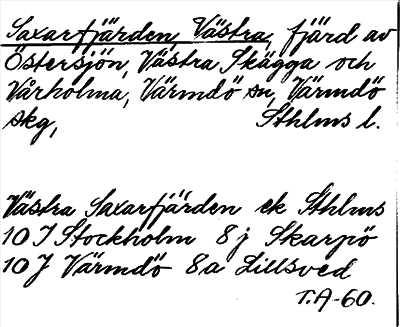 Saxarfjärden, Västra, fjärd av
Östersjön, Västra Skägga och
Vårholma, Värmdö sn, Värmdö
skg, Sthlms l.
Västra Saxarfjärden ek Sthlms
10 I Stockholm 8 j Skarpö
10 J Värmdö 8a Lillsved
T.A-60.